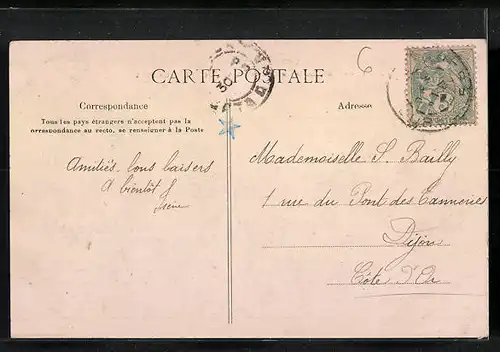 CARTE POSTALE
Correspondance
Tous les pays étrangers n'acceptent pas la
correspondance au recto, se renseigner à la Poste
Adresse
6
30
Amitiés, bons baisers
à bientôt
Mademoiselle S. Bailly
1 rue du Pont des Tanneries
Dijon
Côte d'Or